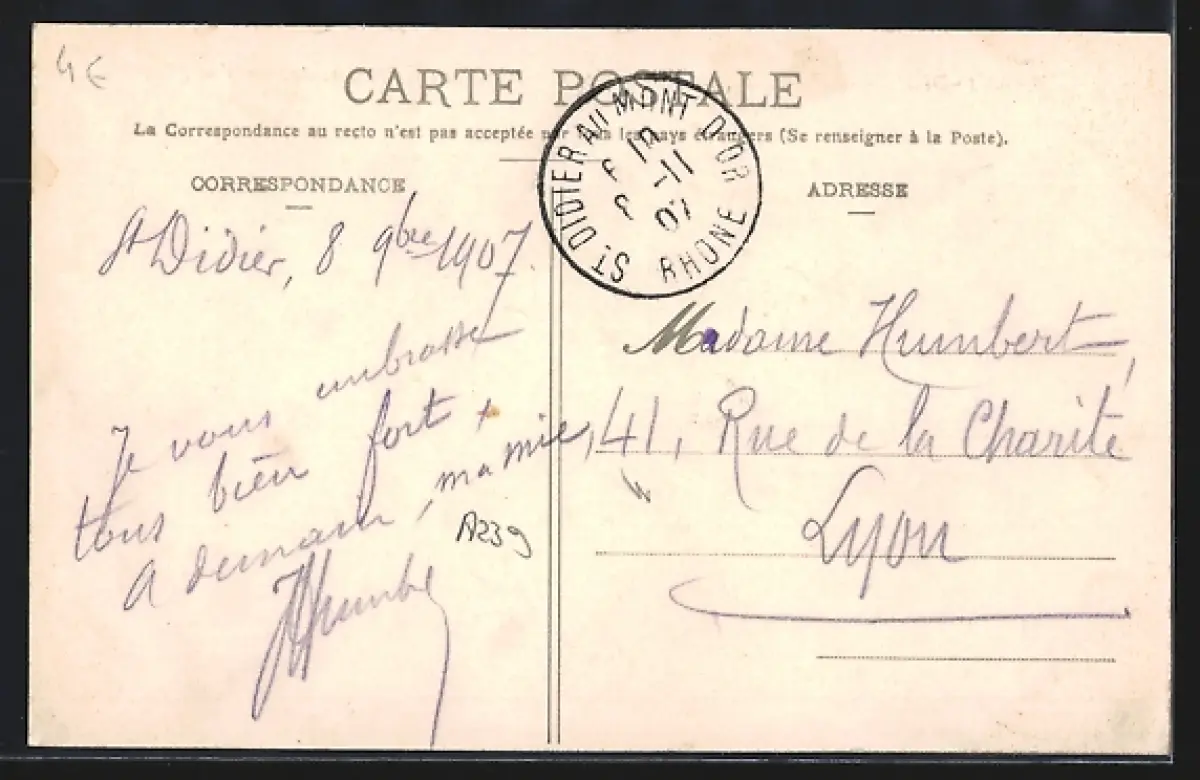 4 €
CARTE POSTALE
La Correspondance au recto n'est pas acceptée par tous les pays étrangers (Se renseigner à la Poste).
CORRESPONDANCE
St Didier, 8 9bre 1907.
Je vous embrasse
tous bien fort +
A demain, ma mie,
JHumbe
A239
ADRESSE
ST DIDIER AU MONT D'OR
RHONE
8 -11 07
Madame Humbert,
41, Rue de la Charité
Lyon